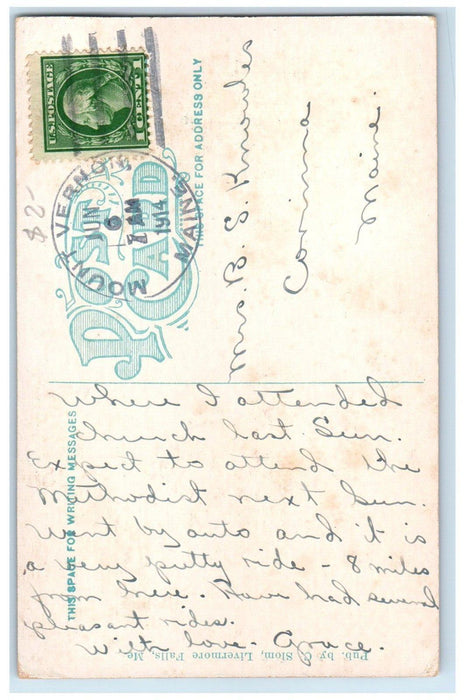 U.S. POSTAGE
1 CENT 1
MOUNT VERNON
JUN
6
7 AM
1914
MAINE
$2-
POST CARD
THIS SPACE FOR ADDRESS ONLY
Mrs. B. S. Knowles
Corinna
Maine.
THIS SPACE FOR WRITING MESSAGES
Where I attended
church last Sun.
Expect to attend the
Methodist next Sun.
Went by auto and it is
a very putty ride - 8 miles
from here. Have had several
pleasant rides.
With love - Grace.
Pub. by C. Slom, Livermore Falls, Me.